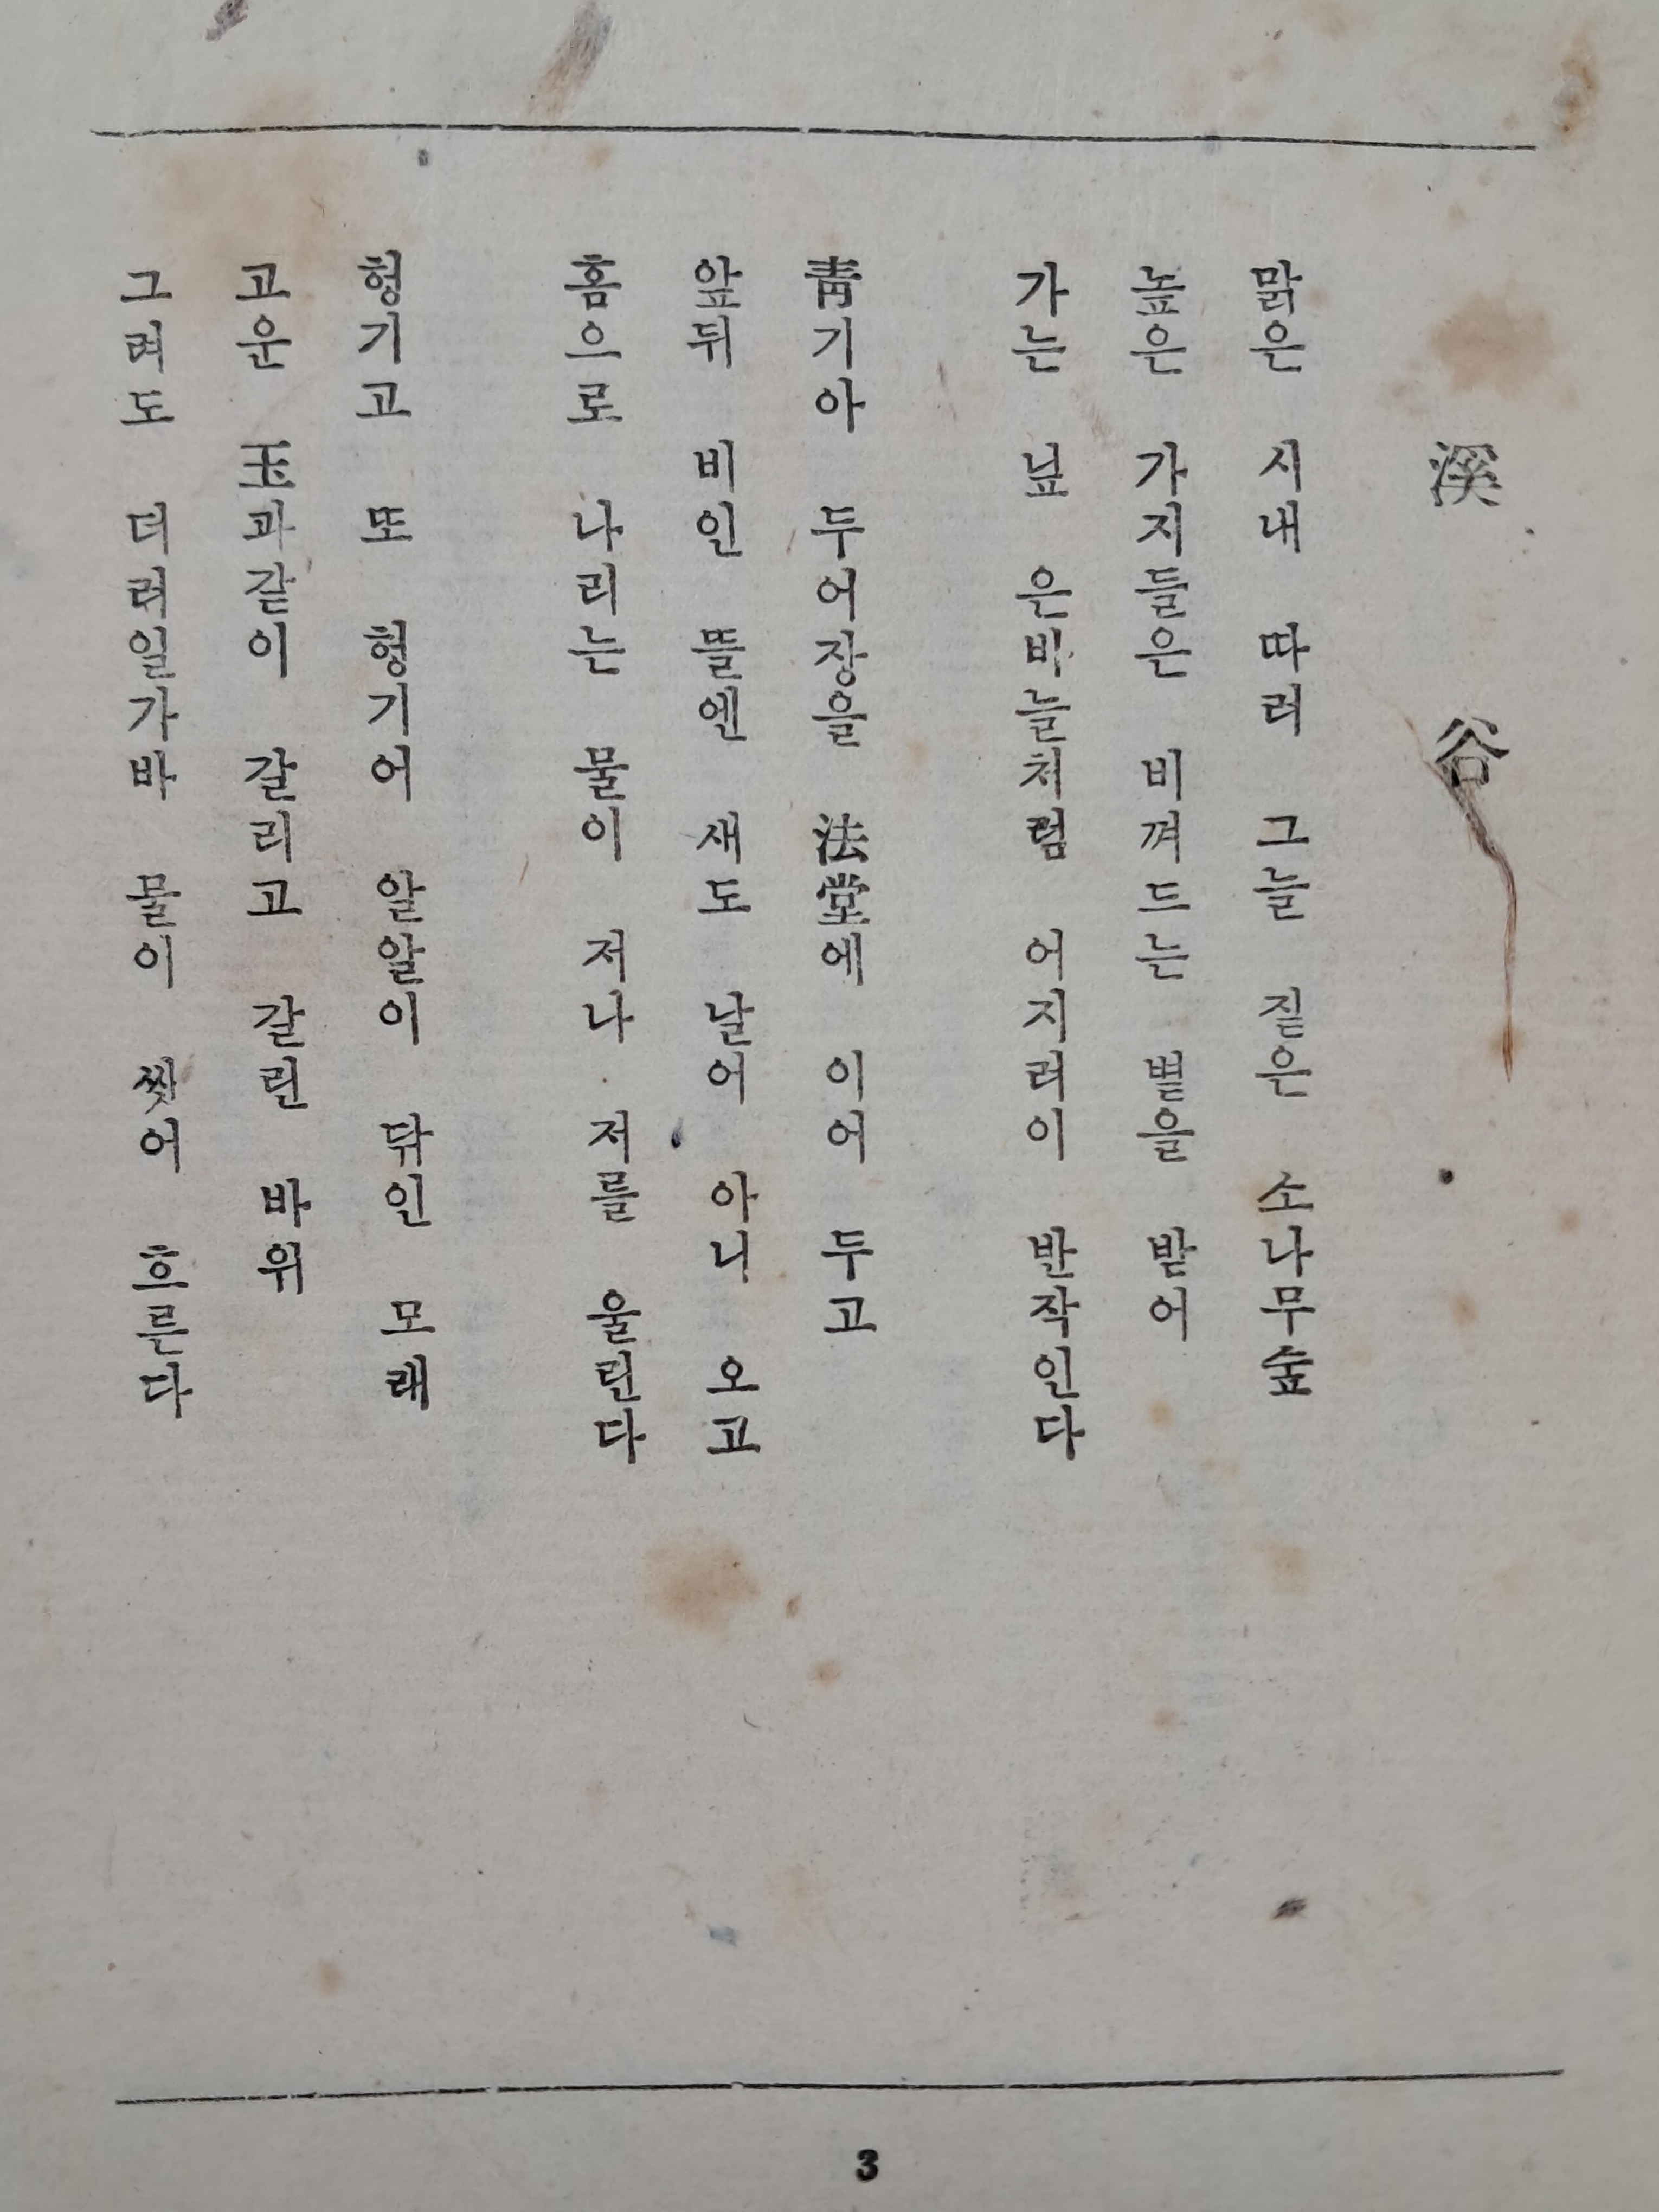 溪谷
맑은 시내 따러 그늘 짙은 소나무숲
높은 가지들은 비껴드는 볕을 받어
가는 닢 은바늘처럼 어지러이 반작인다
靑기아 두어장을 法堂에 이어 두고
앞뒤 비인 뜰엔 새도 날어 아니 오고
홈으로 나리는 물이 저나 저를 울린다
헝기고 또 헝기어 알알이 닦인 모래
고운 玉과같이 갈리고 갈린 바위
그려도 더러일가바 물이 씻어 흐른다
3